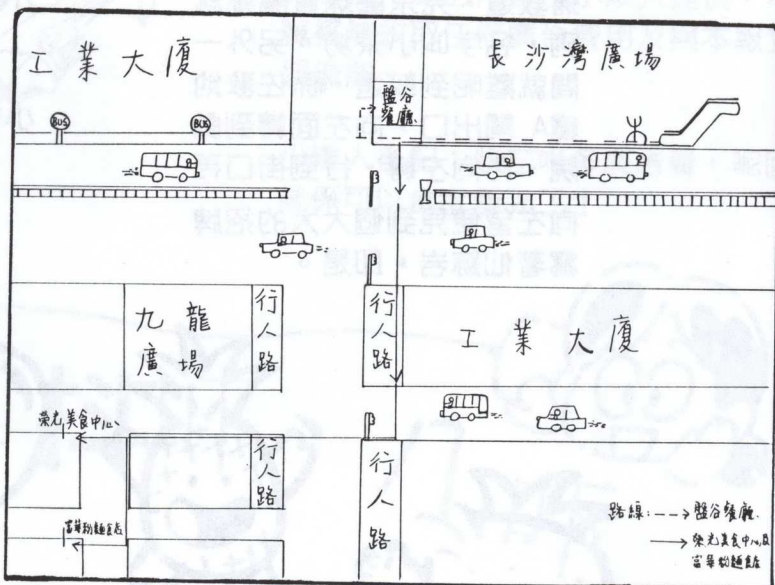 工業大廈
長沙灣廣場
盤谷
餐廳
BUS
BUS
九龍
廣場
行人路
行人路
工業大廈
榮光美食中心
行人路
行人路
富華粉麵食店
路線：---> 盤谷餐廳
榮光美食中心及
富華粉麵食店